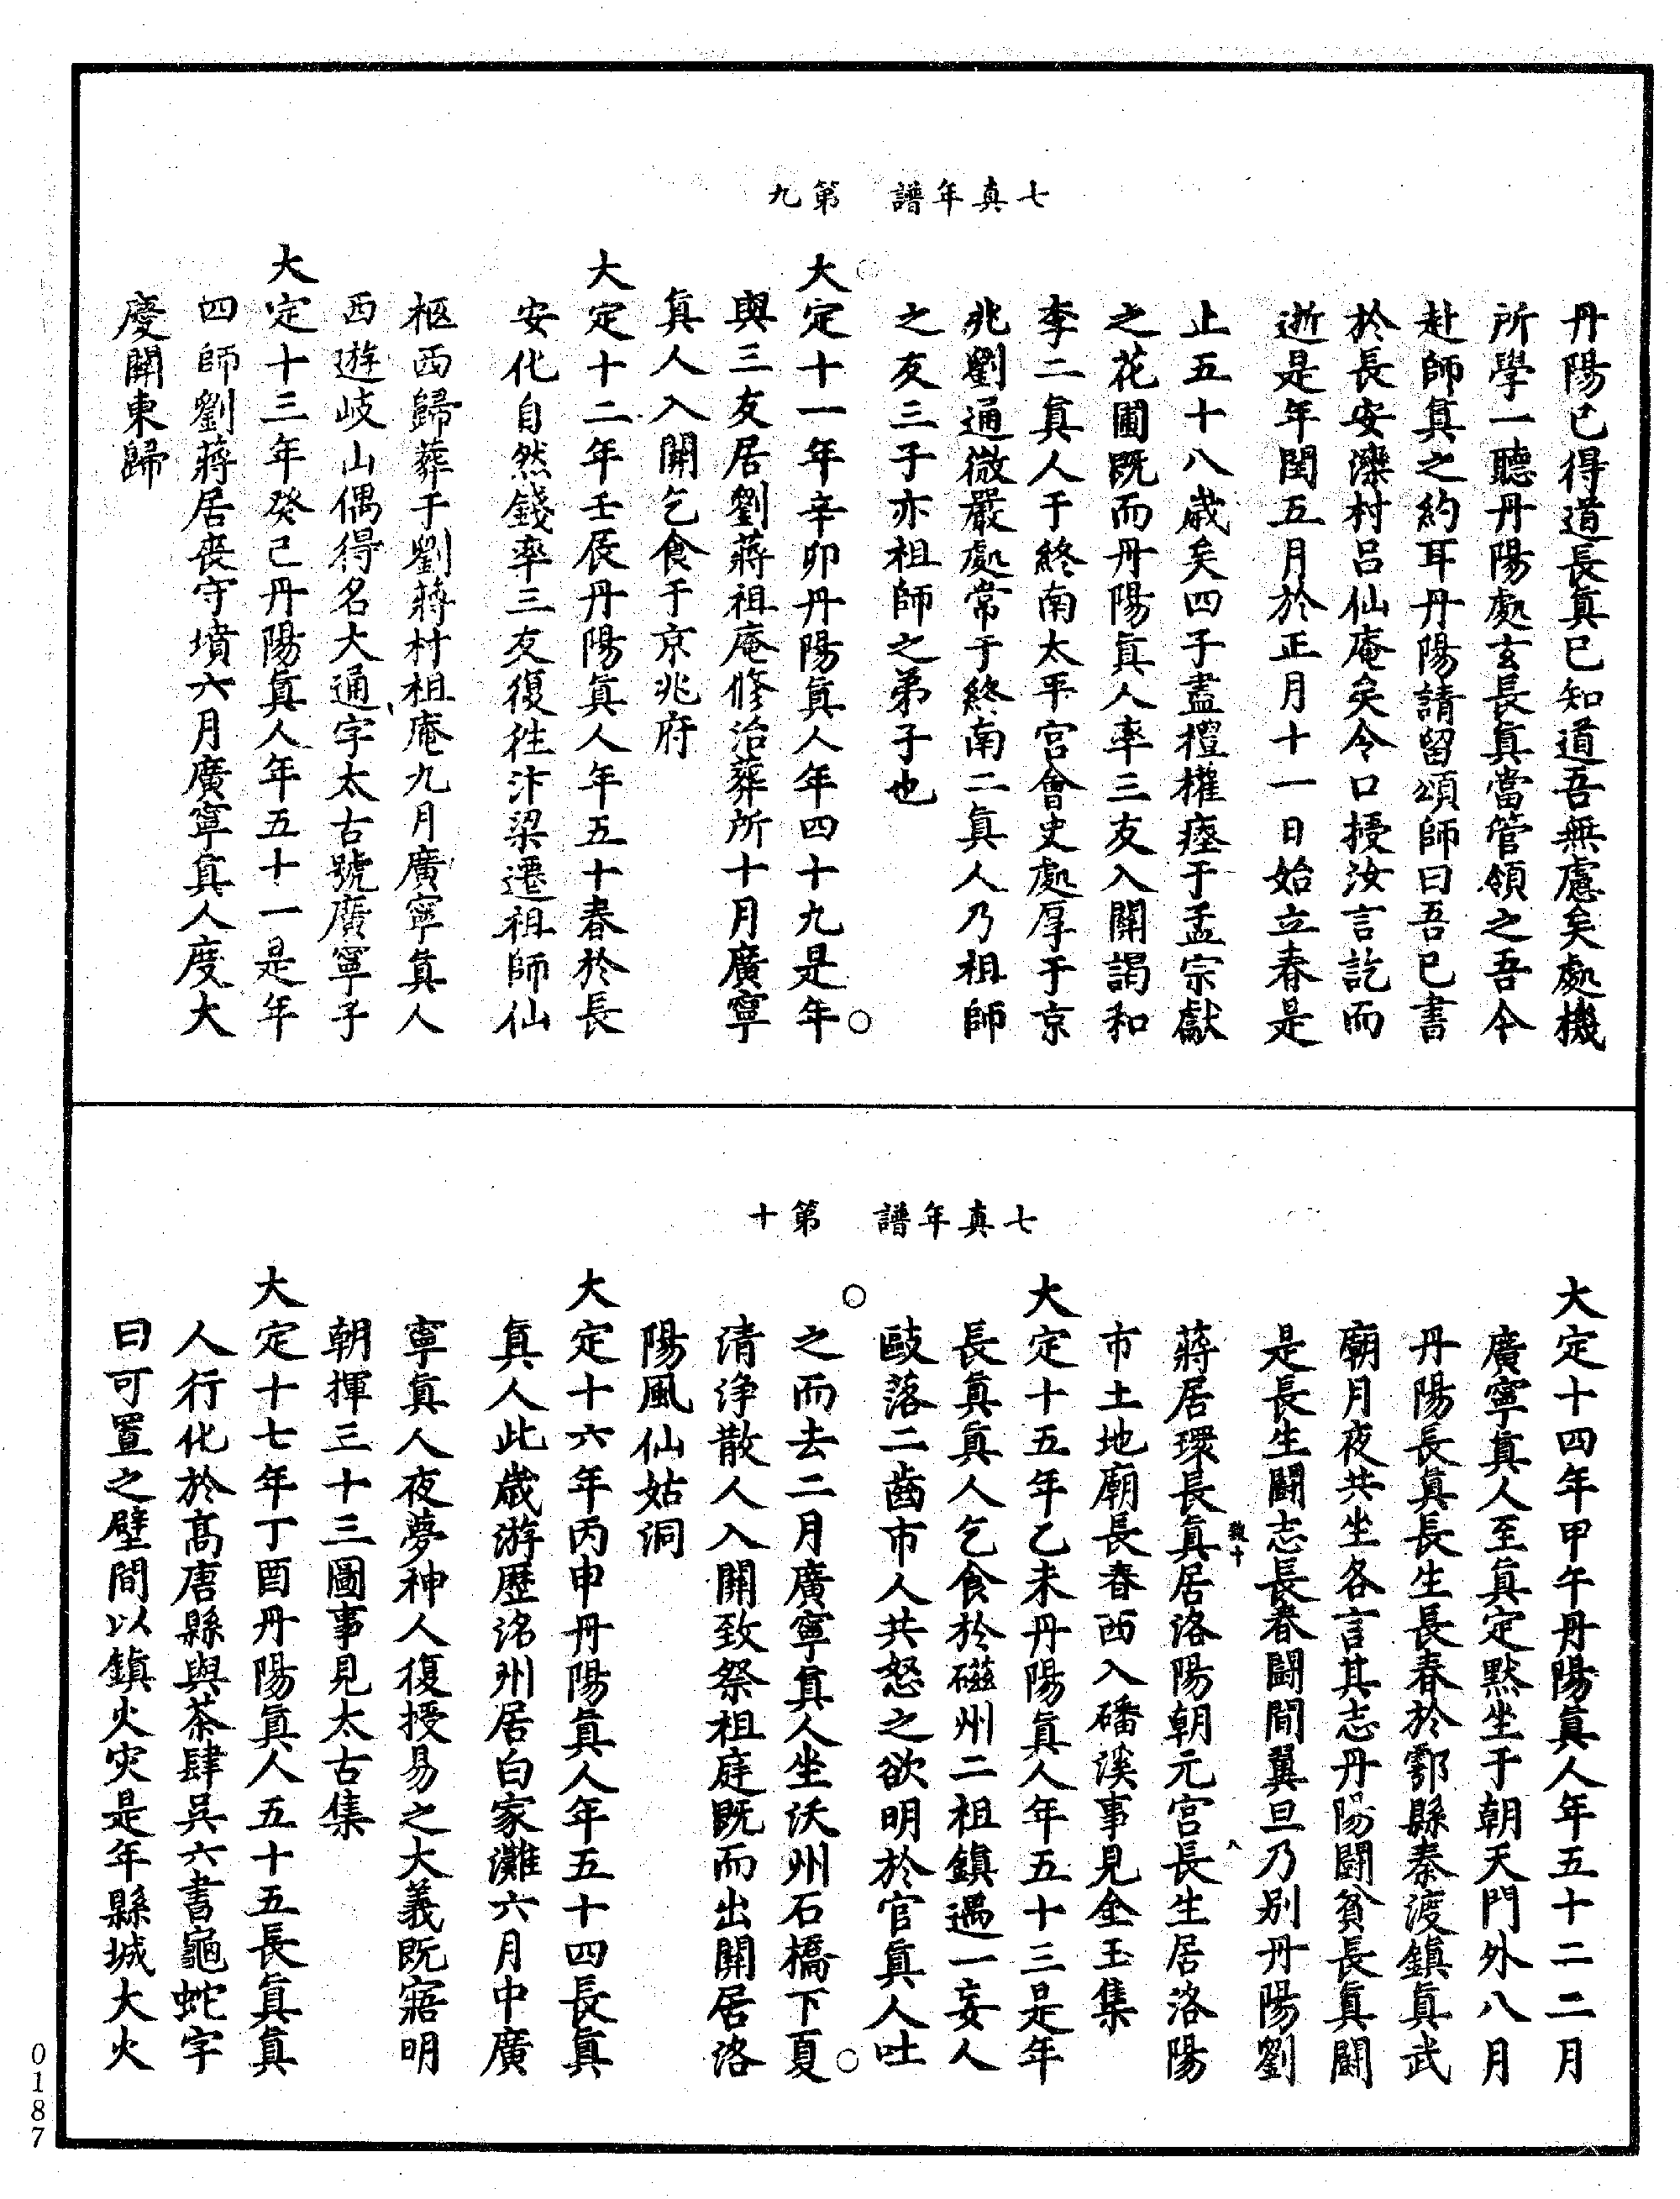 七真年譜　第九
丹陽已得道長真已知道吾無慮矣處機
所學一聽丹陽處玄長真當管領之吾今
赴師真之約耳丹陽請留頌師曰吾已書
於長安灤村呂仙庵矣今口授汝言訖而
逝是年閏五月於正月十一日始立春是
止五十八歲矣四子盡禮權瘞于孟宗獻
之花圃既而丹陽真人率三友入關謁和
李二真人于終南太平宮會史處厚于京
兆劉通微嚴處常于終南二真人乃祖師
之友三子亦祖師之弟子也
大定十一年辛卯丹陽真人年四十九是年
與三友居劉蔣祖庵修治葬所十月廣寧
真人入關乞食于京兆府
大定十二年壬辰丹陽真人年五十春於長
安化自然錢率三友復往汴梁遷祖師仙
柩西歸葬于劉蔣村祖庵九月廣寧真人
西遊岐山偶得名大通字太古號廣寧子
大定十三年癸巳丹陽真人年五十一是年
四師劉蔣居喪守墳六月廣寧真人度大
慶關東歸
七真年譜　第十
大定十四年甲午丹陽真人年五十二二月
廣寧真人至真定默坐于朝天門外八月
丹陽長真長生長春於鄠縣秦渡鎮真武
廟月夜共坐各言其志丹陽鬪貧長真鬪
是長生鬪志長春鬪閒翼旦乃別丹陽劉
蔣居環長真居洛陽朝元宮長生居洛陽
市土地廟長春西入磻溪事見金玉集
大定十五年乙未丹陽真人年五十三是年
長真真人乞食於磁州二祖鎮遇一妄人
毆落二齒市人共怒之欲明於官真人吐
之而去二月廣寧真人坐沃州石橋下夏
清淨散人入關致祭祖庭既而出關居洛
陽風仙姑洞
大定十六年丙申丹陽真人年五十四長真
真人此歲游歷洺州居白家灘六月中廣
寧真人夜夢神人復授易之大義既寤明
朝揮三十三圖事見太古集
大定十七年丁酉丹陽真人五十五長真真
人行化於高唐縣與茶肆吳六書龜蛇字
曰可置之壁間以鎮火灾是年縣城大火
0187